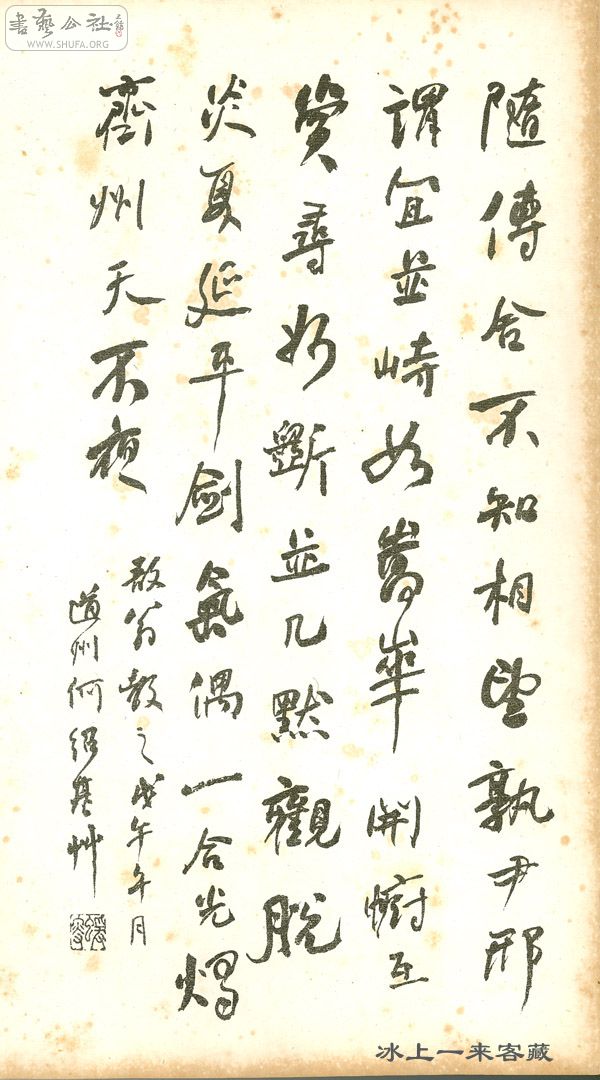 書藝公社
WWW.SHUFA.ORG
隨傳舍不知相望孰尹邢
謂宜並峙如嵩華開幮互
賞尋斷並几默觀脫
炎夏延平劍氣偶一合光燭
齊州天不夜
敔翁教之戊午午月
道州何紹基艸
冰上一来客藏